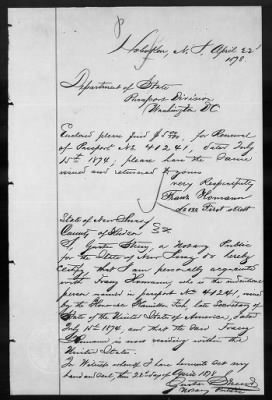 Hoboken, N.J. April 22d
1878
Department of State
Passport Division
Washington DC
Enclosed please find for Renewal
of Passport No. 41241, dated July
15th 1874, please have the same
and returned to yours
very Respectfully
Franz Homann
First Street
State of New Jersey
County of Hudson } SS.
I, Gustav a Notary Public
for the State of New Jersey do hereby
certify that I am personally acquainted
with Franz Homann who is the individual
person named in passport No 41241, issued
by the Honorable Hamilton Fish, late Secretary of
State of the United States of America, dated
July 15th 1874, and that the said Franz
Homann is now residing within the
United States.
In Witness whereof I have hereunto set my
hand and seal, this 22d day of April 1878
Gustav
Notary Public